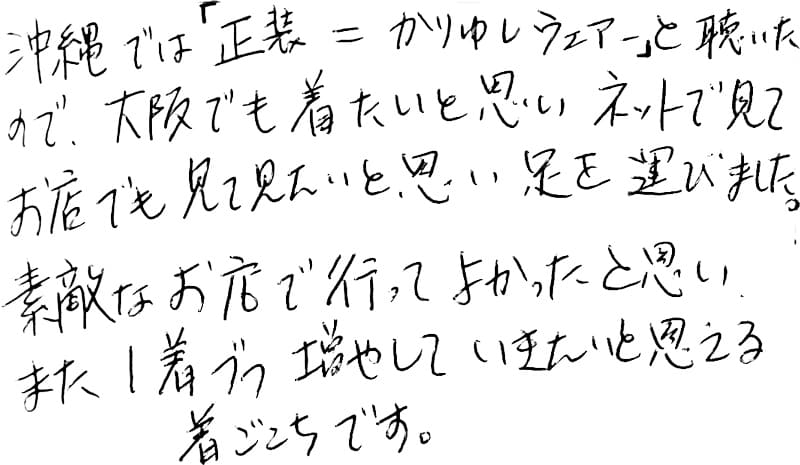 沖縄では「正装=かりゆしウェアー」と聴いた
ので、大阪でも着たいと思い ネットで見て
お店でも見て見たいと思い 足を運びました。
素敵なお店で行ってよかったと思い
また1着づつ増やしていきたいと思える
着ごこちです。